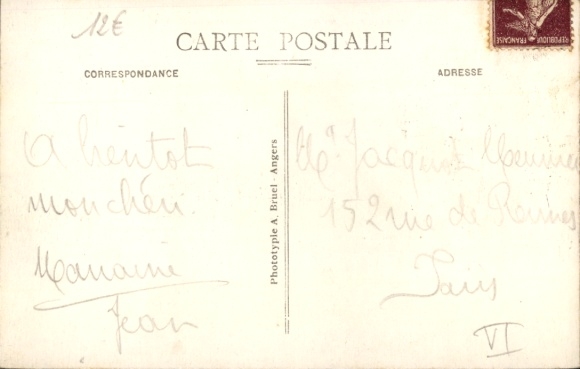 12€
CARTE POSTALE
CORRESPONDANCE
ADRESSE
REPUBLIQUE FRANÇAISE
A bientot
mon chéri.
Jean
Phototypie A. Bruel - Angers
Mr Jacques Meunier
152 rue de Rennes
Paris
VI